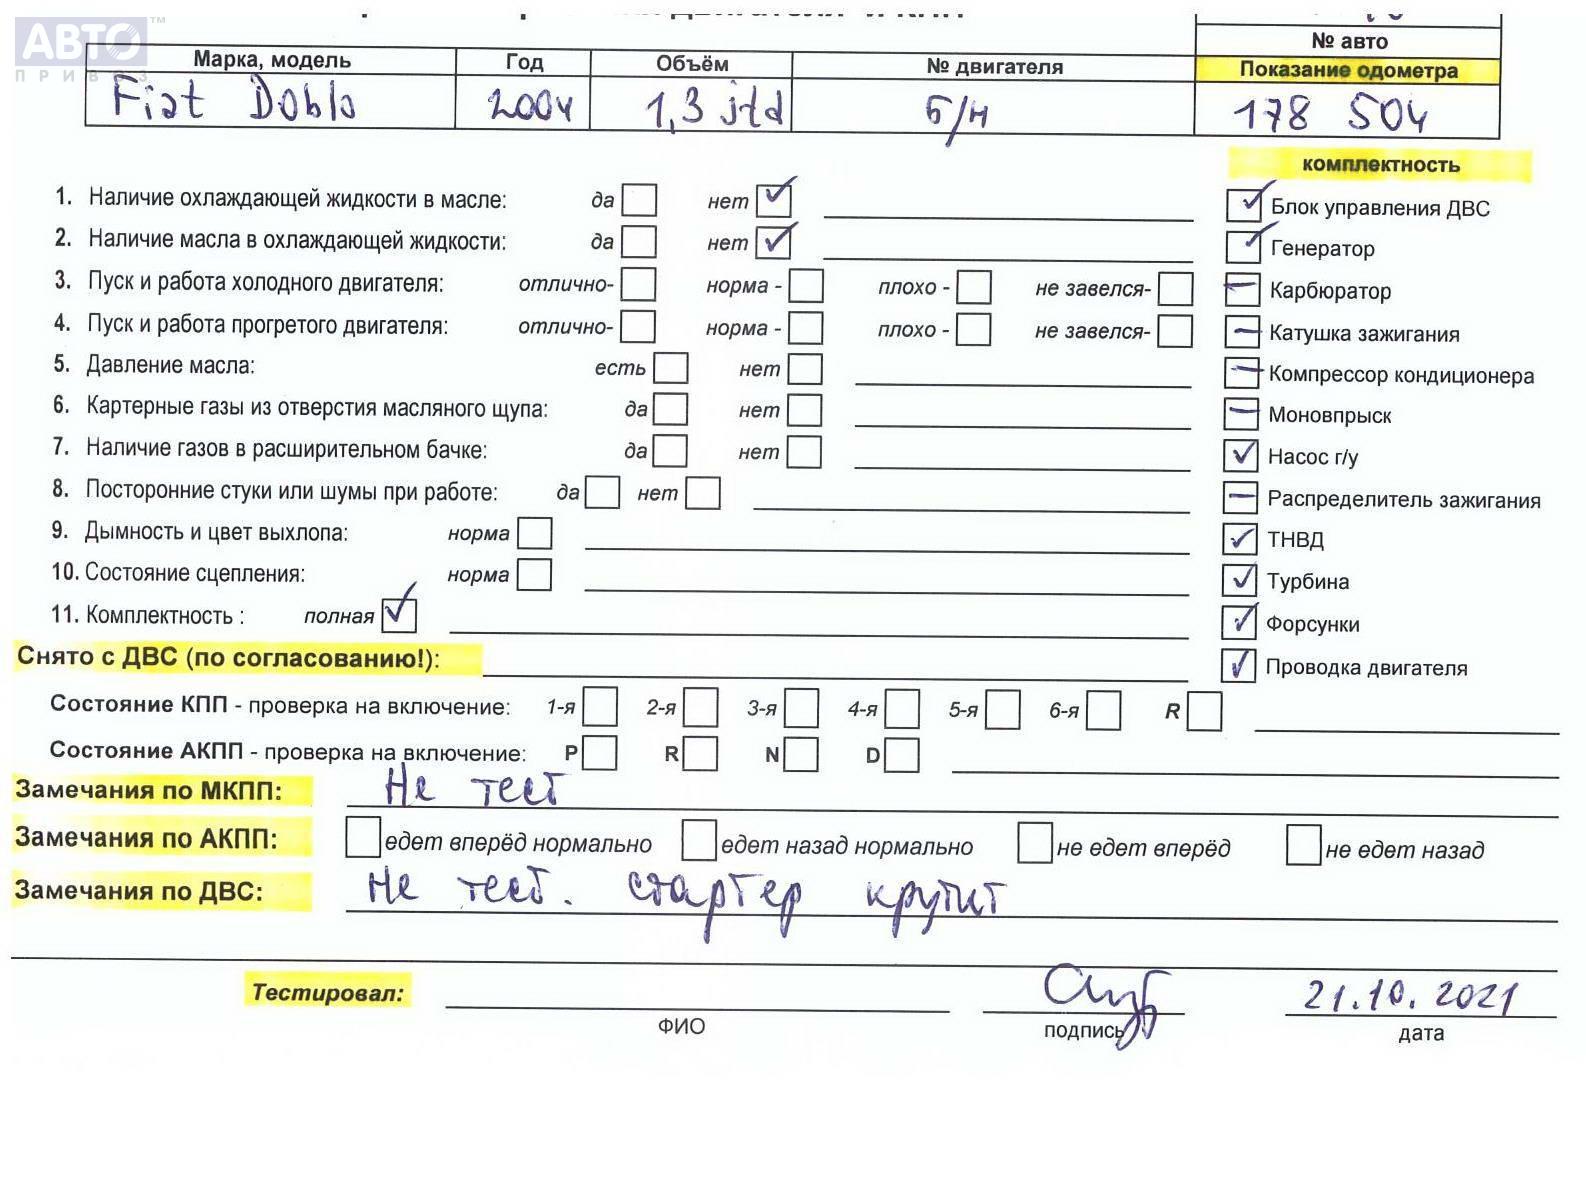 АВТО™
ПРИВОЗ
№ авто
Марка, модель Год Объём № двигателя Показание одометра
Fiat Doblo 2004 1,3 jtd б/н 178 504
комплектность
1. Наличие охлаждающей жидкости в масле: да нет ✓
Блок управления ДВС ✓
2. Наличие масла в охлаждающей жидкости: да нет ✓
Генератор ✓
3. Пуск и работа холодного двигателя: отлично- норма - плохо - не завелся-
— Карбюратор
4. Пуск и работа прогретого двигателя: отлично- норма - плохо - не завелся-
— Катушка зажигания
5. Давление масла: есть нет
— Компрессор кондиционера
6. Картерные газы из отверстия масляного щупа: да нет
— Моновпрыск
7. Наличие газов в расширительном бачке: да нет
✓ Насос г/у
8. Посторонние стуки или шумы при работе: да нет
— Распределитель зажигания
9. Дымность и цвет выхлопа: норма
✓ ТНВД
10. Состояние сцепления: норма
✓ Турбина
11. Комплектность : полная ✓
✓ Форсунки
Снято с ДВС (по согласованию!):
✓ Проводка двигателя
Состояние КПП - проверка на включение: 1-я 2-я 3-я 4-я 5-я 6-я R
Состояние АКПП - проверка на включение: P R N D
Замечания по МКПП: Не тест
Замечания по АКПП: едет вперёд нормально едет назад нормально не едет вперёд не едет назад
Замечания по ДВС: Не тест. стартер крутит
Тестировал: 21.10.2021
ФИО подпись дата